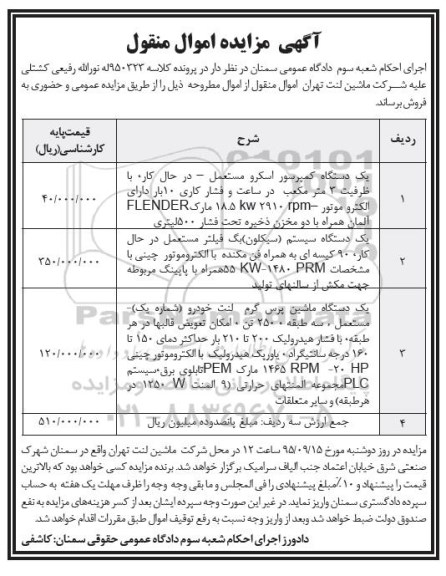 آگهی مزایده اموال منقول
اجرای احکام شعبه سوم دادگاه عمومی سمنان در نظر دار در پرونده کلاسه ۹۵۰۳۲۳له نورالله رفیعی کشتلی
علیه شرکت ماشین لنت تهران اموال منقول از اموال مطروحه ذیل را از طریق مزایده عمومی و حضوری به
فروش برساند.
ردیف
شرح
قیمت‌پایه
کارشناسی(ریال)
۱
یک دستگاه کمپرسور اسکرو مستعمل – در حال کار، با
ظرفیت ۳ متر مکعب در ساعت و فشار کاری ۱۰بار دارای
الکترو موتور –۱۸.۵ kw ۲۹۱۰ rpm مارکFLENDER
آلمان همراه با دو مخزن ذخیره تحت فشار ۵۰۰لیتری
۴۰/۰۰۰/۰۰۰
۲
یک دستگاه سیستم (سیکلون)بگ فیلتر مستعمل در حال
کار، ۹۰ کیسه ای به همراه فن مکنده با الکتروموتور چینی با
مشخصات ۵۵KW-۱۴۸۰ PRMهمراه با پایپنگ مربوطه
جهت مکش از سالنهای تولید
۳۵۰/۰۰۰/۰۰۰
۳
یک دستگاه ماشین پرس گرم لنت خودرو (شماره یک)-
مستعمل ، سه طبقه ، ۲۵۰ تن ، امکان تعویض قالبها در هر
طبقه، با فشار هیدرولیک ۲۰۰ تا ۲۱۰ بار حداکثر دمای ۱۵۰ تا
۱۶۰ درجه سانتیگراد ، پاورپک هیدرولیک با الکتروموتور چینی
۱۴۶۵ RPM -۲۰ HP مارک PEMتابلوی برق،سیستم
PLCمجموعه المنتهای حرارتی (۹ المنت ۱۲۵۰ W در
هرطبقه) و سایر متعلقات
۱۲۰/۰۰۰/۰۰۰
۴
جمع ارزش سه ردیف: مبلغ پانصدوده میلیون ریال
۵۱۰/۰۰۰/۰۰۰
مزایده در روز دوشنبه مورخ ۹۵/۰۹/۱۵ ساعت ۱۲ در محل شرکت ماشین لنت تهران واقع در سمنان شهرک
صنعتی شرق خیابان اعتماد جنب الیاف سرامیک برگزار خواهد شد. برنده مزایده کسی خواهد بود که بالاترین
قیمت را پیشنهاد و ۱۰٪مبلغ پیشنهادی را فی المجلس و ما بقی وجه وجه را ظرف مهلت یک هفته به حساب
سپرده دادگستری سمنان واریز نماید. در غیر این صورت وجه سپرده ایشان بعد از کسر هزینه‌های مزایده به نفع
صندوق دولت ضبط خواهد شد وبعد از واریز وجه نسبت به رفع توقیف اموال طبق مقررات اقدام خواهد شد.
دادورز اجرای احکام شعبه سوم دادگاه عمومی حقوقی سمنان: کاشفی
۰۲۱-۸۸۳۴۹۶۷۰-۵